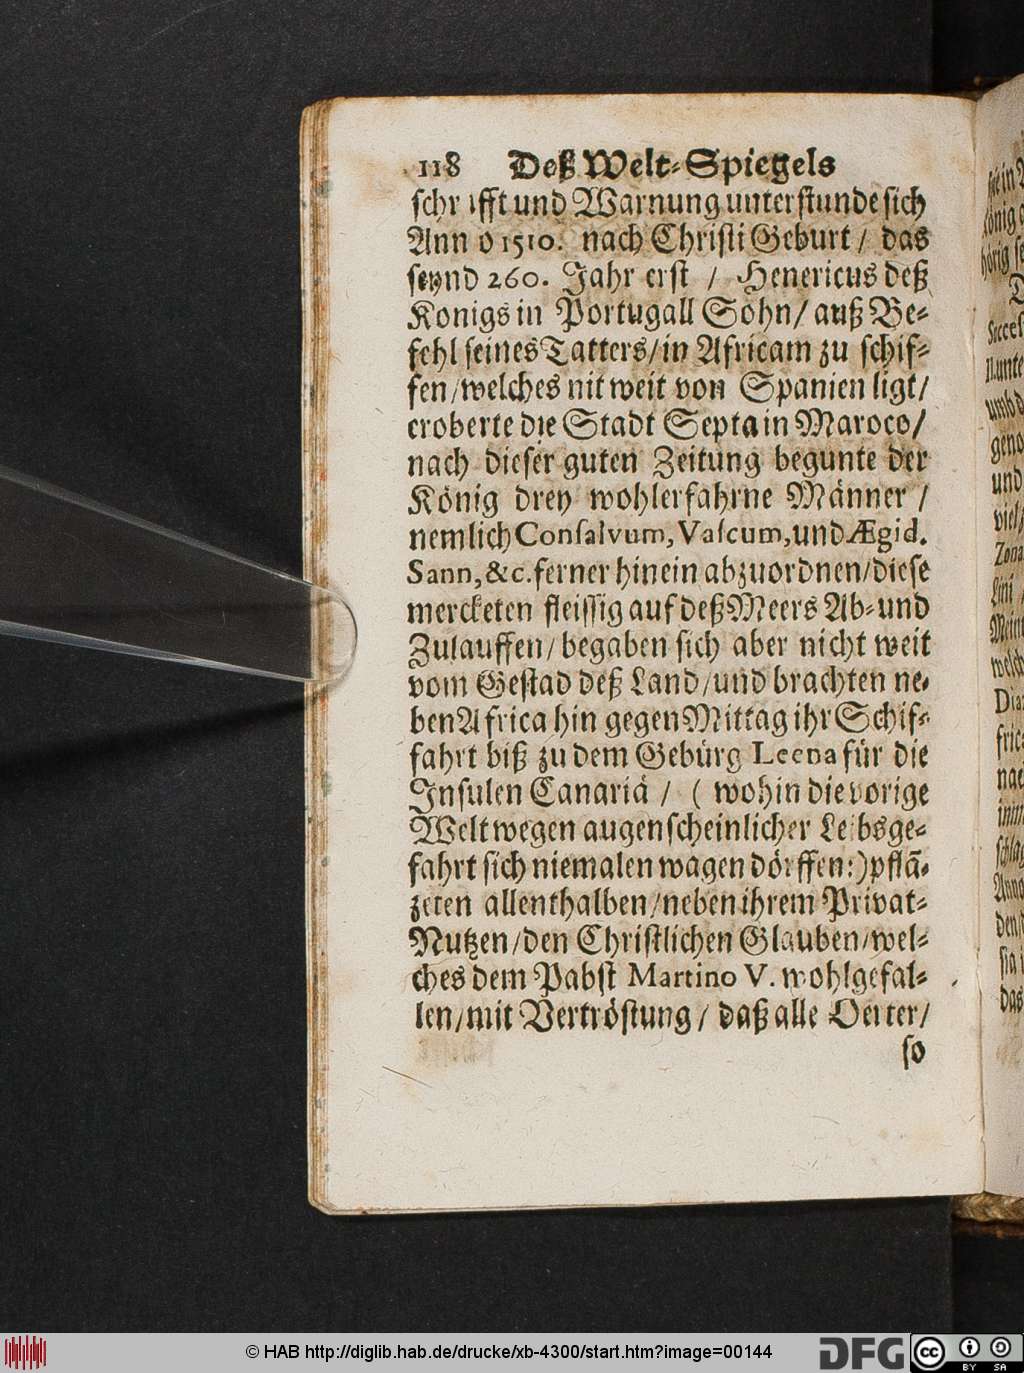 118 Deß Welt-Spiegels
schrifft und Warnung unterstunde sich
Anno 1510. nach Christi Geburt / das
seynd 260. Jahr erst / Henericus deß
Konigs in Portugall Sohn / auß Be-
fehl seines Tatters / in Africam zu schif-
fen / welches nit weit von Spanien ligt /
eroberte die Stadt Septa in Maroco /
nach dieser guten Zeitung begunte der
König drey wohlerfahrne Männer /
nemlich Consalvum, Vascum, und Ægid.
Sann, &c. ferner hinein abzuordnen / diese
mercketen fleissig auf deß Meers Ab- und
Zulauffen / begaben sich aber nicht weit
vom Gestad deß Land / und brachten ne-
ben Africa hin gegen Mittag ihr Schif-
fahrt biß zu dem Gebürg Leena für die
Insulen Canariä / ( wohin die vorige
Welt wegen augenscheinlicher Leibsge-
fahrt sich niemalen wagen dörffen:) pflã-
zeten allenthalben / neben ihrem Privat-
Nutzen / den Christlichen Glauben / wel-
ches dem Pabst Martino V. wohlgefal-
len / mit Vertröstung / daß alle Oerter /
so
© HAB http://diglib.hab.de/drucke/xb-4300/start.htm?image=00144
DFG
cc BY SA